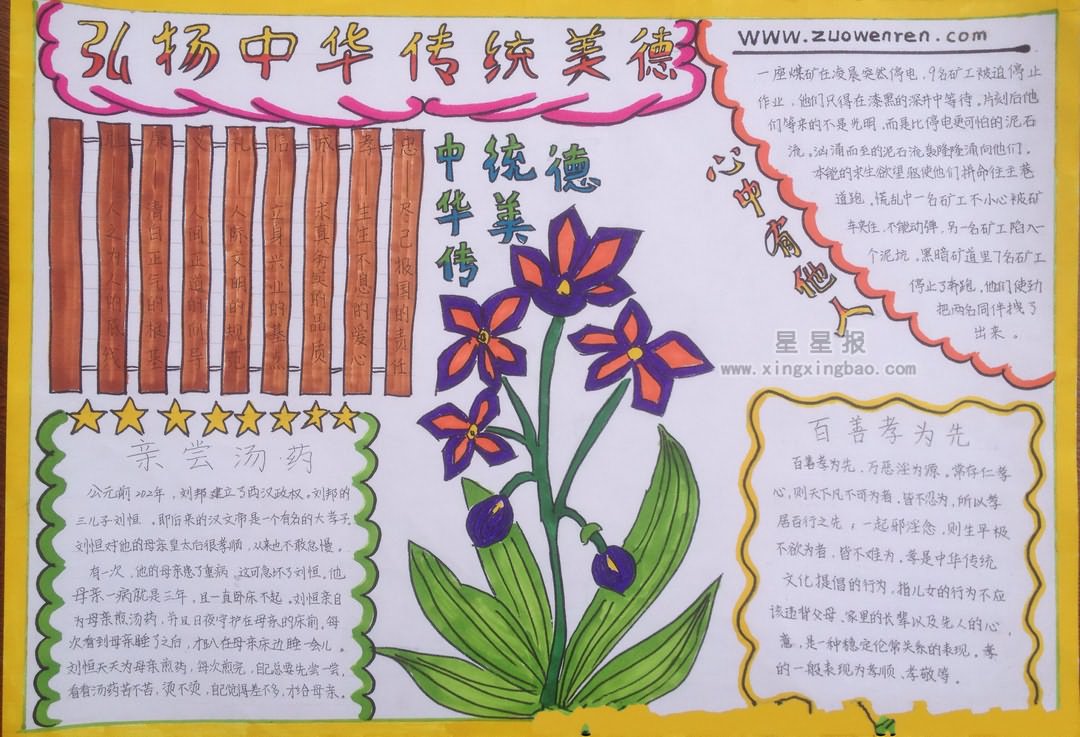 弘扬中华传统美德
www.zuowenren.com
一座煤矿在凌晨突然停电，9名矿工被迫停止
作业，他们只得在漆黑的深井中等待。片刻后他
们等来的不是光明，而是比停电更可怕的泥石
流。汹涌而至的泥石流轰隆隆涌向他们。
本能的求生欲望驱使他们拼命往主巷
道跑。慌乱中一名矿工不小心被矿
车夹住，不能动弹，另一名矿工陷入一
个泥坑。黑暗矿道里7名矿工
停止了奔跑，他们使劲
把两名同伴拽了
出来。
心中有他人
中华传
统美
德
忠——尽己报国的责任
孝——生生不息的爱心
诚——求真务实的品质
信——立身兴业的基
礼——人际文明的规范
义——人间正道的向导
廉——清白正气的根基
耻——人之为
星星报
www.xingxingbao.com
亲尝汤药
公元前202年，刘邦建立了西汉政权。刘邦的
三儿子刘恒，即后来的汉文帝是一个有名的大孝子。
刘恒对他的母亲皇太后很孝顺，从来也不敢怠慢。
有一次，他的母亲患了重病，这可急坏了刘恒。他
母亲一病就是三年，且一直卧床不起。刘恒亲自
为母亲煎汤药，并且日夜守护在母亲的床前。每
次看到母亲睡了之后，才趴在母亲床边睡一会儿。
刘恒天天为母亲煎药，每次煎完，自己总要先尝一尝，
看看汤药苦不苦，烫不烫，自己觉得差不多，才给母亲。
百善孝为先
百善孝为先，万恶淫为源。常存仁孝
心，则天下凡不可为者，皆不忍为，所以孝
居百行之先；一起邪淫念，则生平极
不欲为者，皆不难为。孝是中华传统
文化提倡的行为，指儿女的行为不应
该违背父母、家里的长辈以及先人的心
意，是一种稳定伦常关系的表现。孝
的一般表现为孝顺、孝敬等。